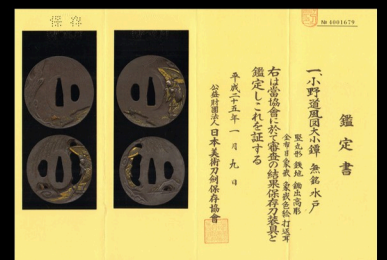 保存
№ 4001679
鑑定書
一、小野道風図大小鐔 無銘 水戸
竪丸形 鉄地 鋤出高彫
金布目象嵌 象嵌色絵 打返耳
右は當協會に於て審査の結果保存刀装具と
鑑定しこれを証する
平成二十五年一月九日
公益財団法人 日本美術刀剣保存協會